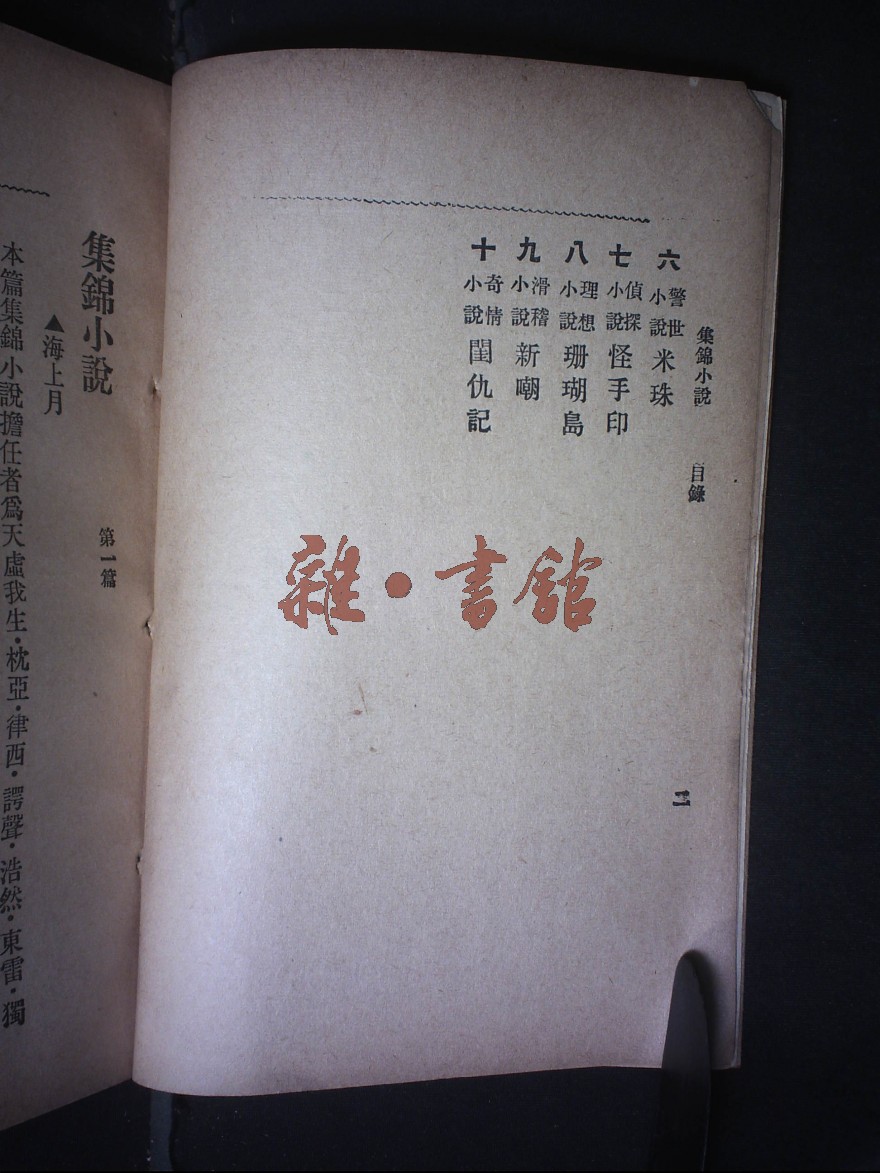 集錦小說 目錄
六 警世小說 米珠
七 偵探小說 怪手印
八 理想小說 珊瑚島
九 滑稽小說 新嘲
十 奇情小說 閨仇記
二
雜·書館
集錦小說 第一篇
▲海上月
本篇集錦小說擔任者爲天虛我生·枕亞·律西·諤聲·浩然·東雷·獨